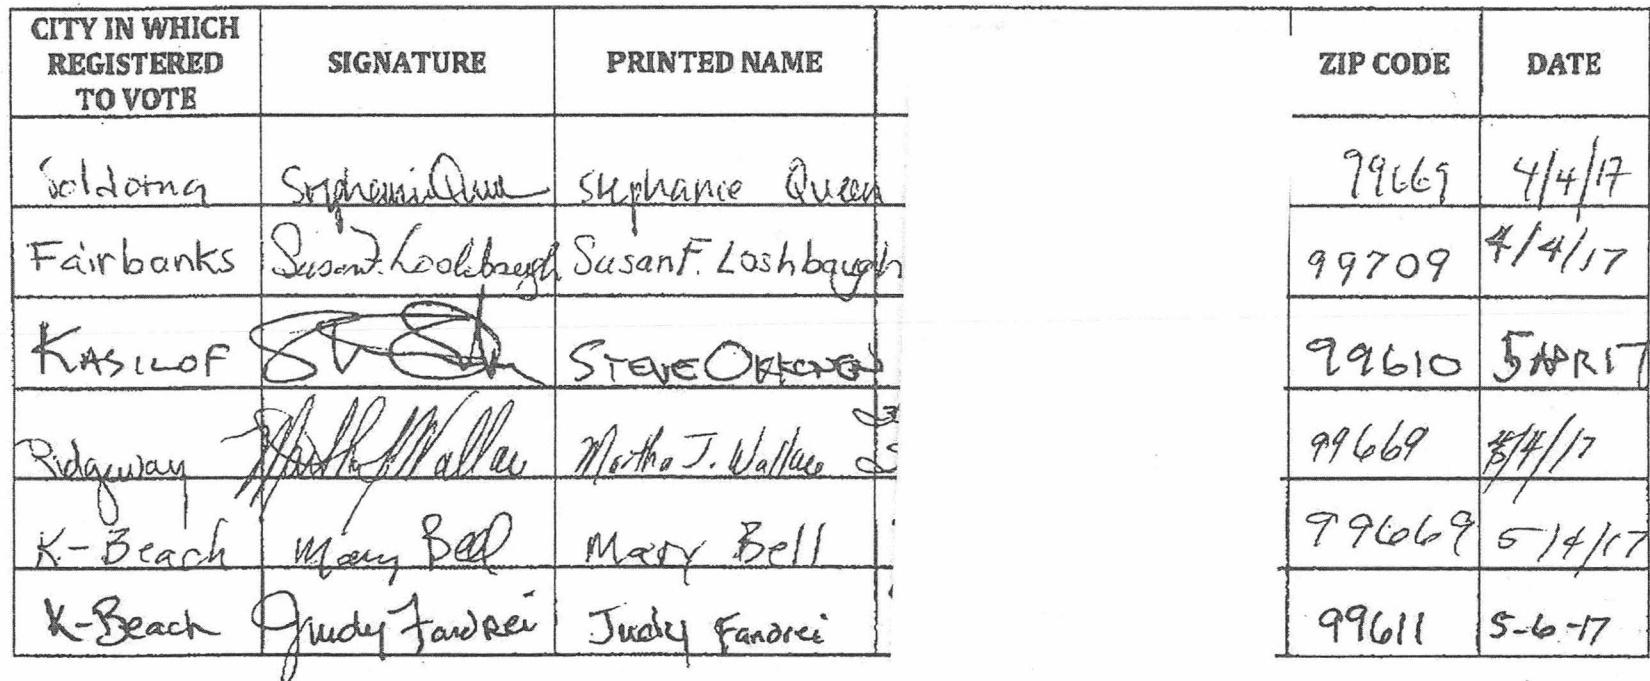 CITY IN WHICH
REGISTERED
TO VOTE
SIGNATURE
PRINTED NAME
ZIP CODE
DATE
Soldotna Stephanie Queen Stephanie Queen 99669 4/4/17
Fairbanks Susan F. Loshbaugh Susan F. Loshbaugh 99709 4/4/17
KASILOF STEVE OKKONEN 99610 5 APR 17
Ridgeway Martha J Wallace Martha J. Wallace 99669 /4/17
K-Beach Mary Bell Mary Bell 99669 5/4/17
K-Beach Judy Fandrei Judy Fandrei 99611 5-6-17